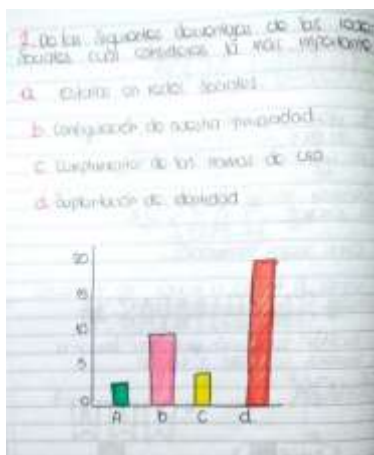 2. De las siguientes desventajas de las redes
sociales cual consideras tú más importante
a. Estafas en redes sociales.
b. configuración de nuestra privacidad.
c. cumplimiento de las normas de uso
d. suplantación de identidad
20
15
10
5
0
A b c d.